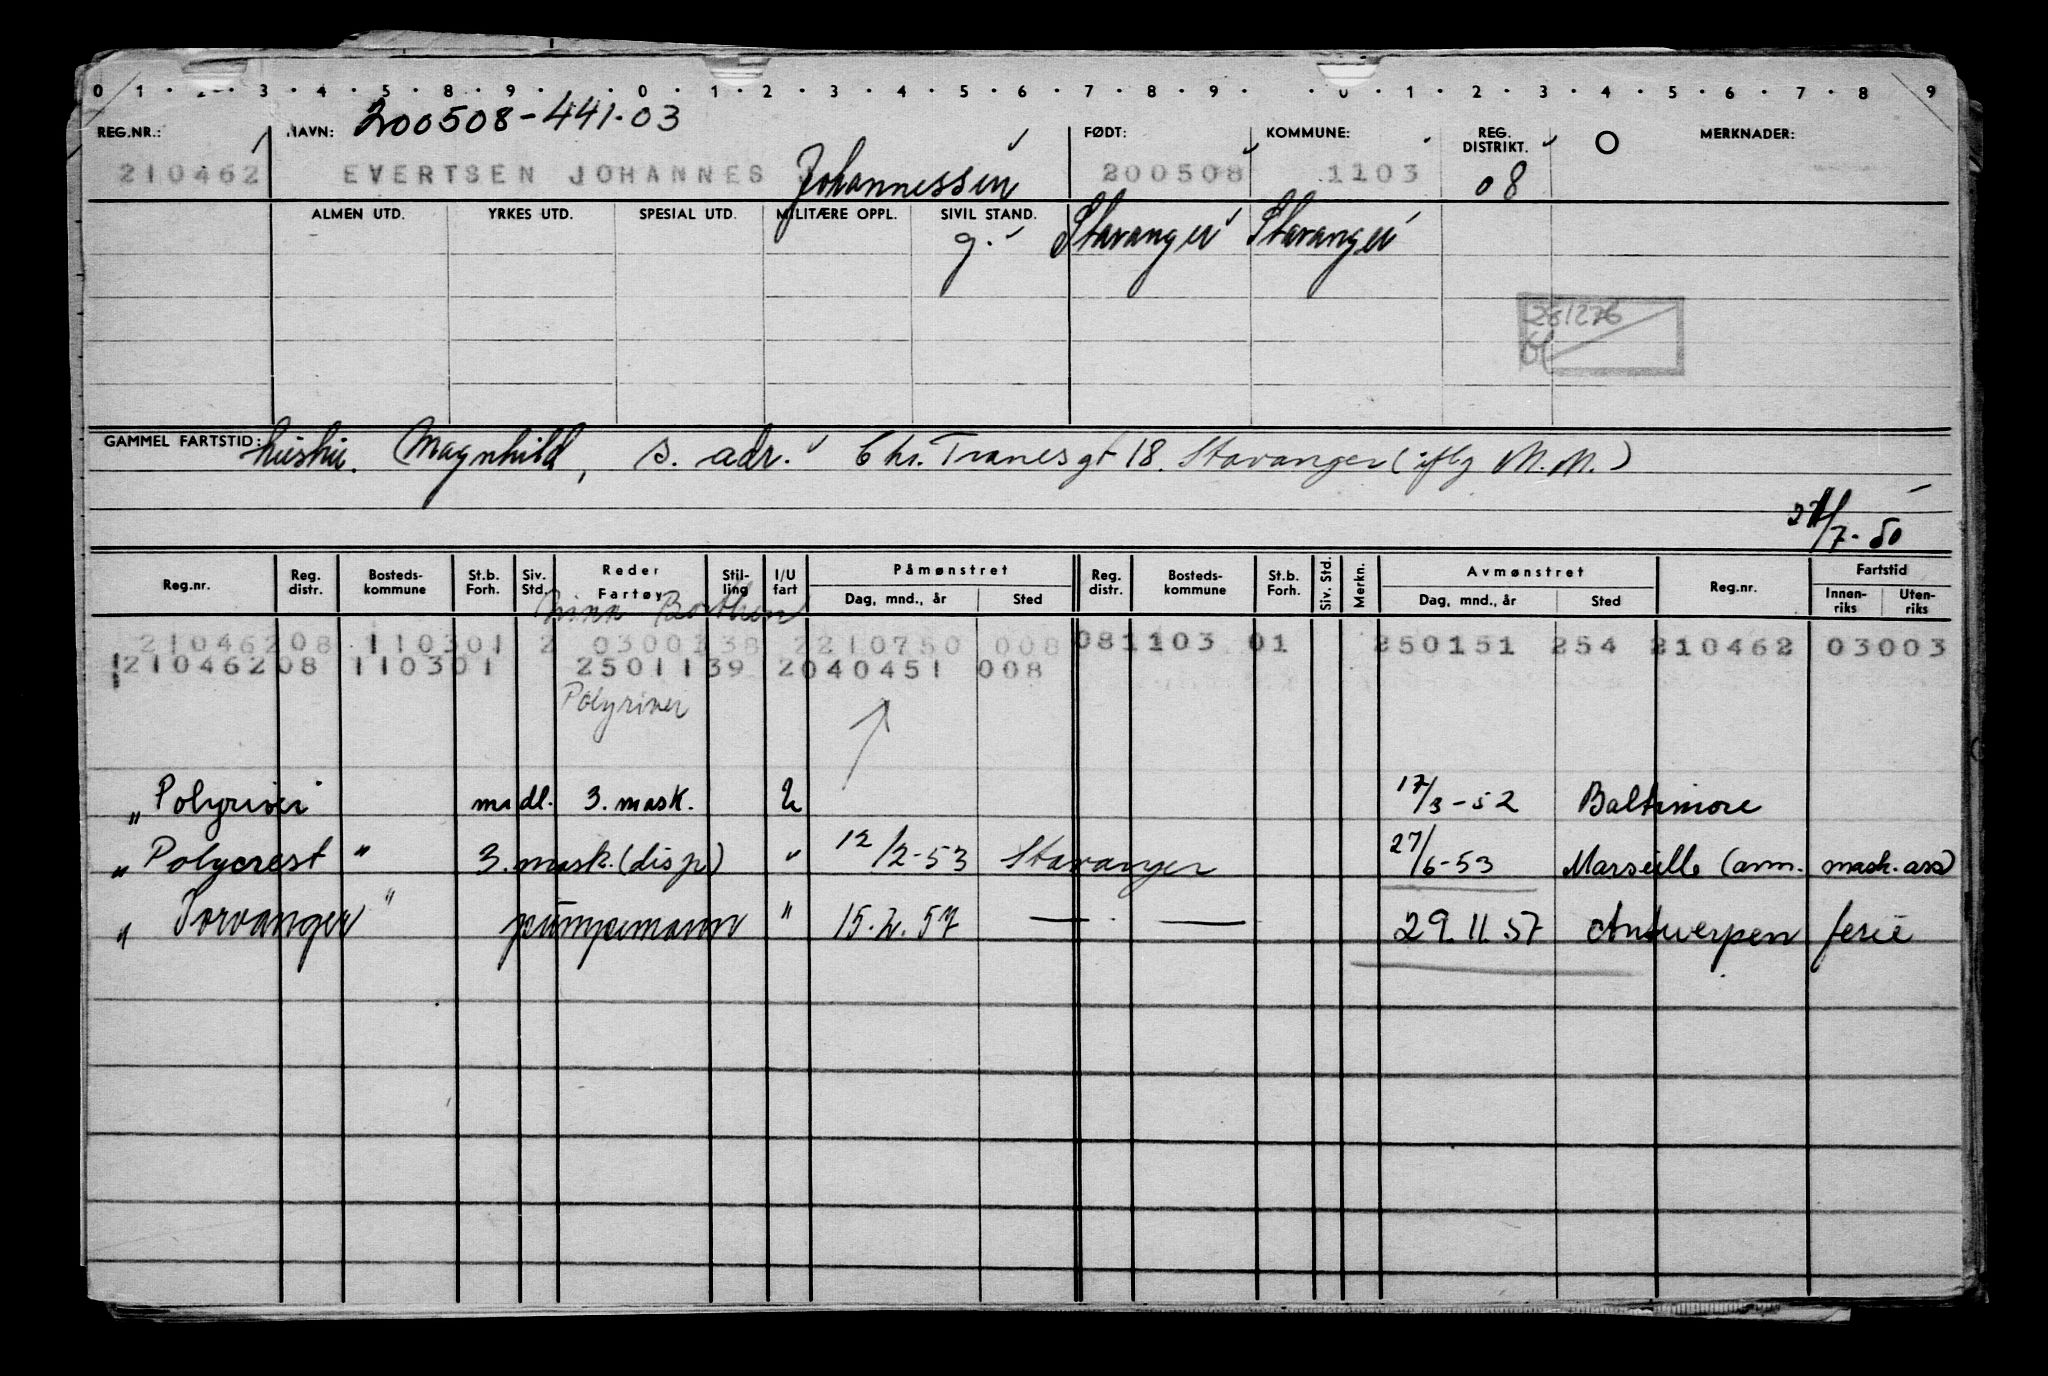 0 1 2 3 4 5 6 7 8 9 0 1 2 3 4 5 6 7 8 9 0 1 2 3 4 5 6 7 8 9
200508-441-03
REG.NR.: NAVN: FØDT: KOMMUNE: REG. DISTRIKT. MERKNADER:
210462 EVERTSEN JOHANNES Johannessen 200508 1103 08
ALMEN UTD. YRKES UTD. SPESIAL UTD. MILITÆRE OPPL. SIVIL STAND.
g. Stavanger Stavanger
281276
GAMMEL FARTSTID: hustru. Magnhild, s. adr. Chr. Tranesgt 18. Stavanger (iflg M.M.)
/7-50
Reg.nr. Reg. distr. Bosteds-kommune St.b. Forh. Siv. Std. Reder Fartøy Stil-ling I/U fart Påmønstret Reg. distr. Bosteds-kommune St.b. Forh. Siv. Std. Merkn. Avmønstret Reg.nr. Fartstid
Dag, mnd., år Sted Dag, mnd., år Sted Innen-riks Uten-riks
Nina Borthen
21046208 110301 2 0300138 2210750 008 081103 01 250151 254 210462 03003
21046208 110301 2501139 2040451 008
Polyriver
"Polyriver" madl. 3. mask. U 17/3-52 Baltimore
"Polycrest" 3. mask. (disp) " 12/2-53 Stavanger 27/6-53 Marseille (avm. mask. ass)
"Torvanger" pumpemann " 15.2.57 — — 29.11.57 Antwerpen ferie